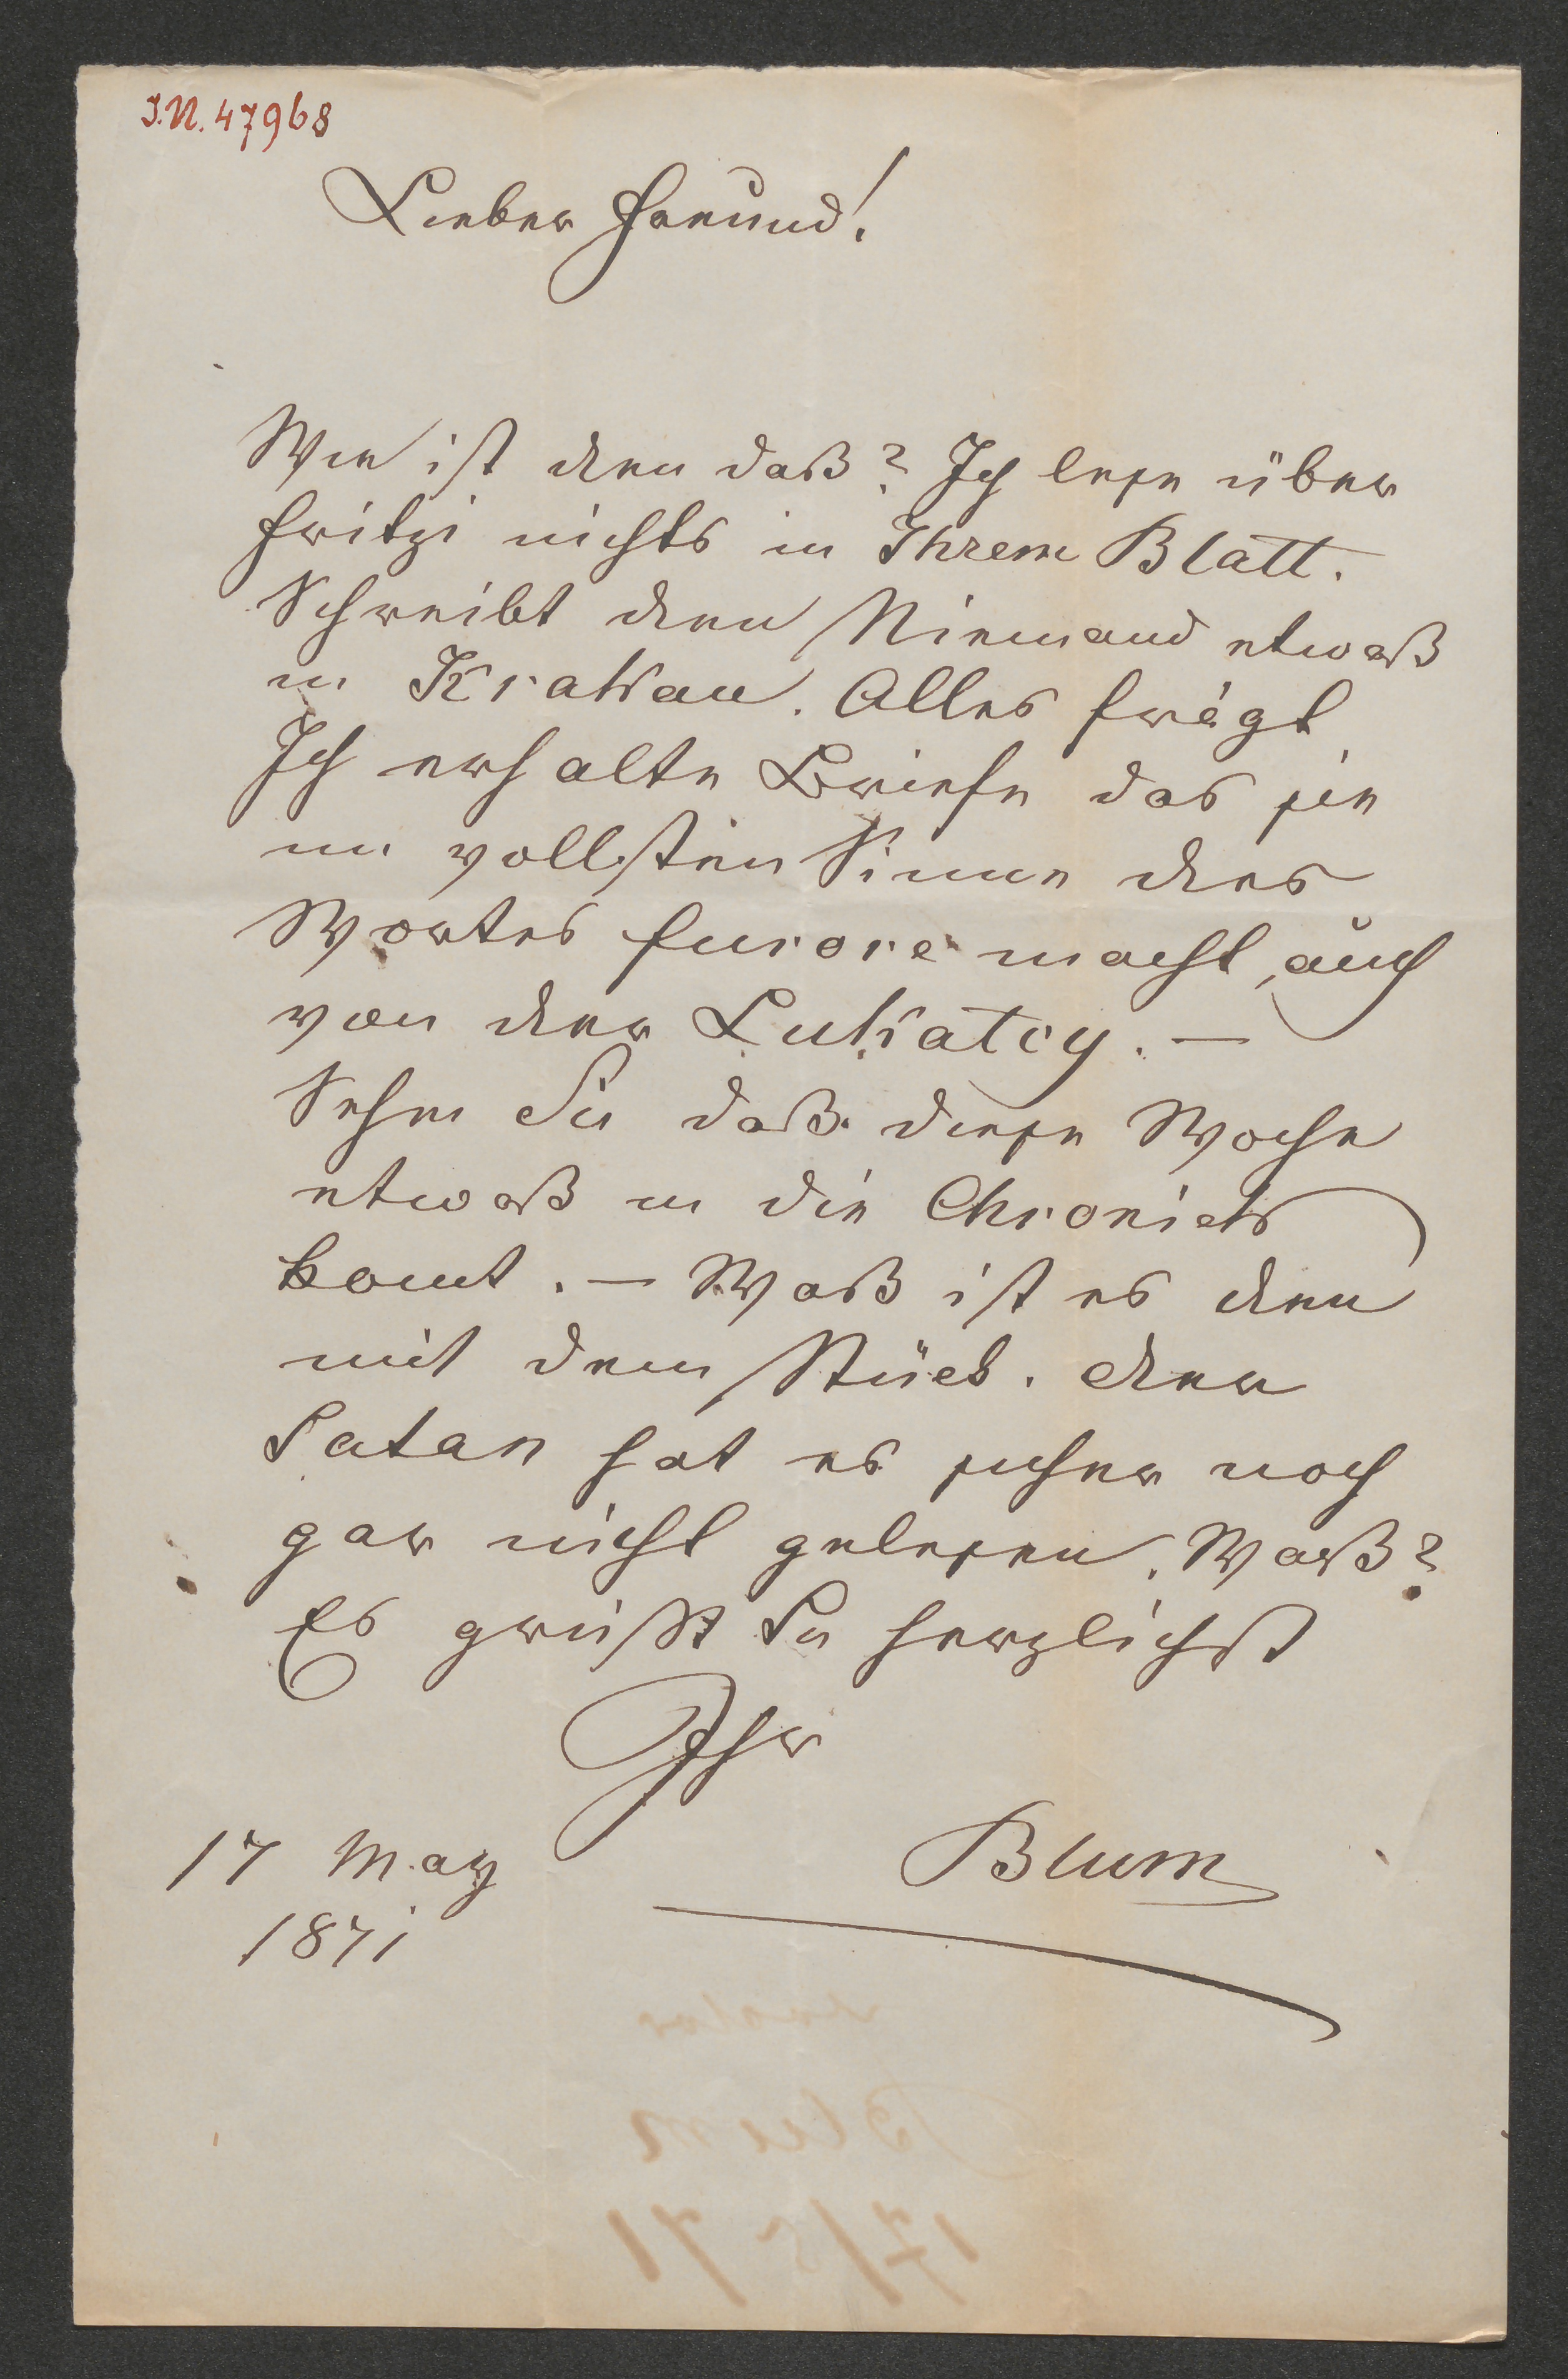 I.N. 47968
Lieber Freund!
Wie ist den daß? Ich lese über
Fritzi nichts in Ihrem Blatt.
Schreibt den Niemand etwaß
in Krakau. Alles frägt
Ich erhalte Briefe das sie
im vollsten Sinne des
Wortes furore macht, auch
von der Lukatcy. —
Sehen Sie daß diese Woche
etwaß in die Chronick
komt. — Waß ist es den
mit dem Stück. Der
Satan hat es sicher noch
gar nicht gelesen. Waß?
Es grüßt Sie herzlichst
Ihr
Blum
17 May
1871
Blum
17/5 71